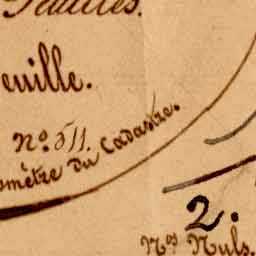 Feuilles.
euille.
No. 511.
omètre du Cadastre.
2.
Nos Nuls.